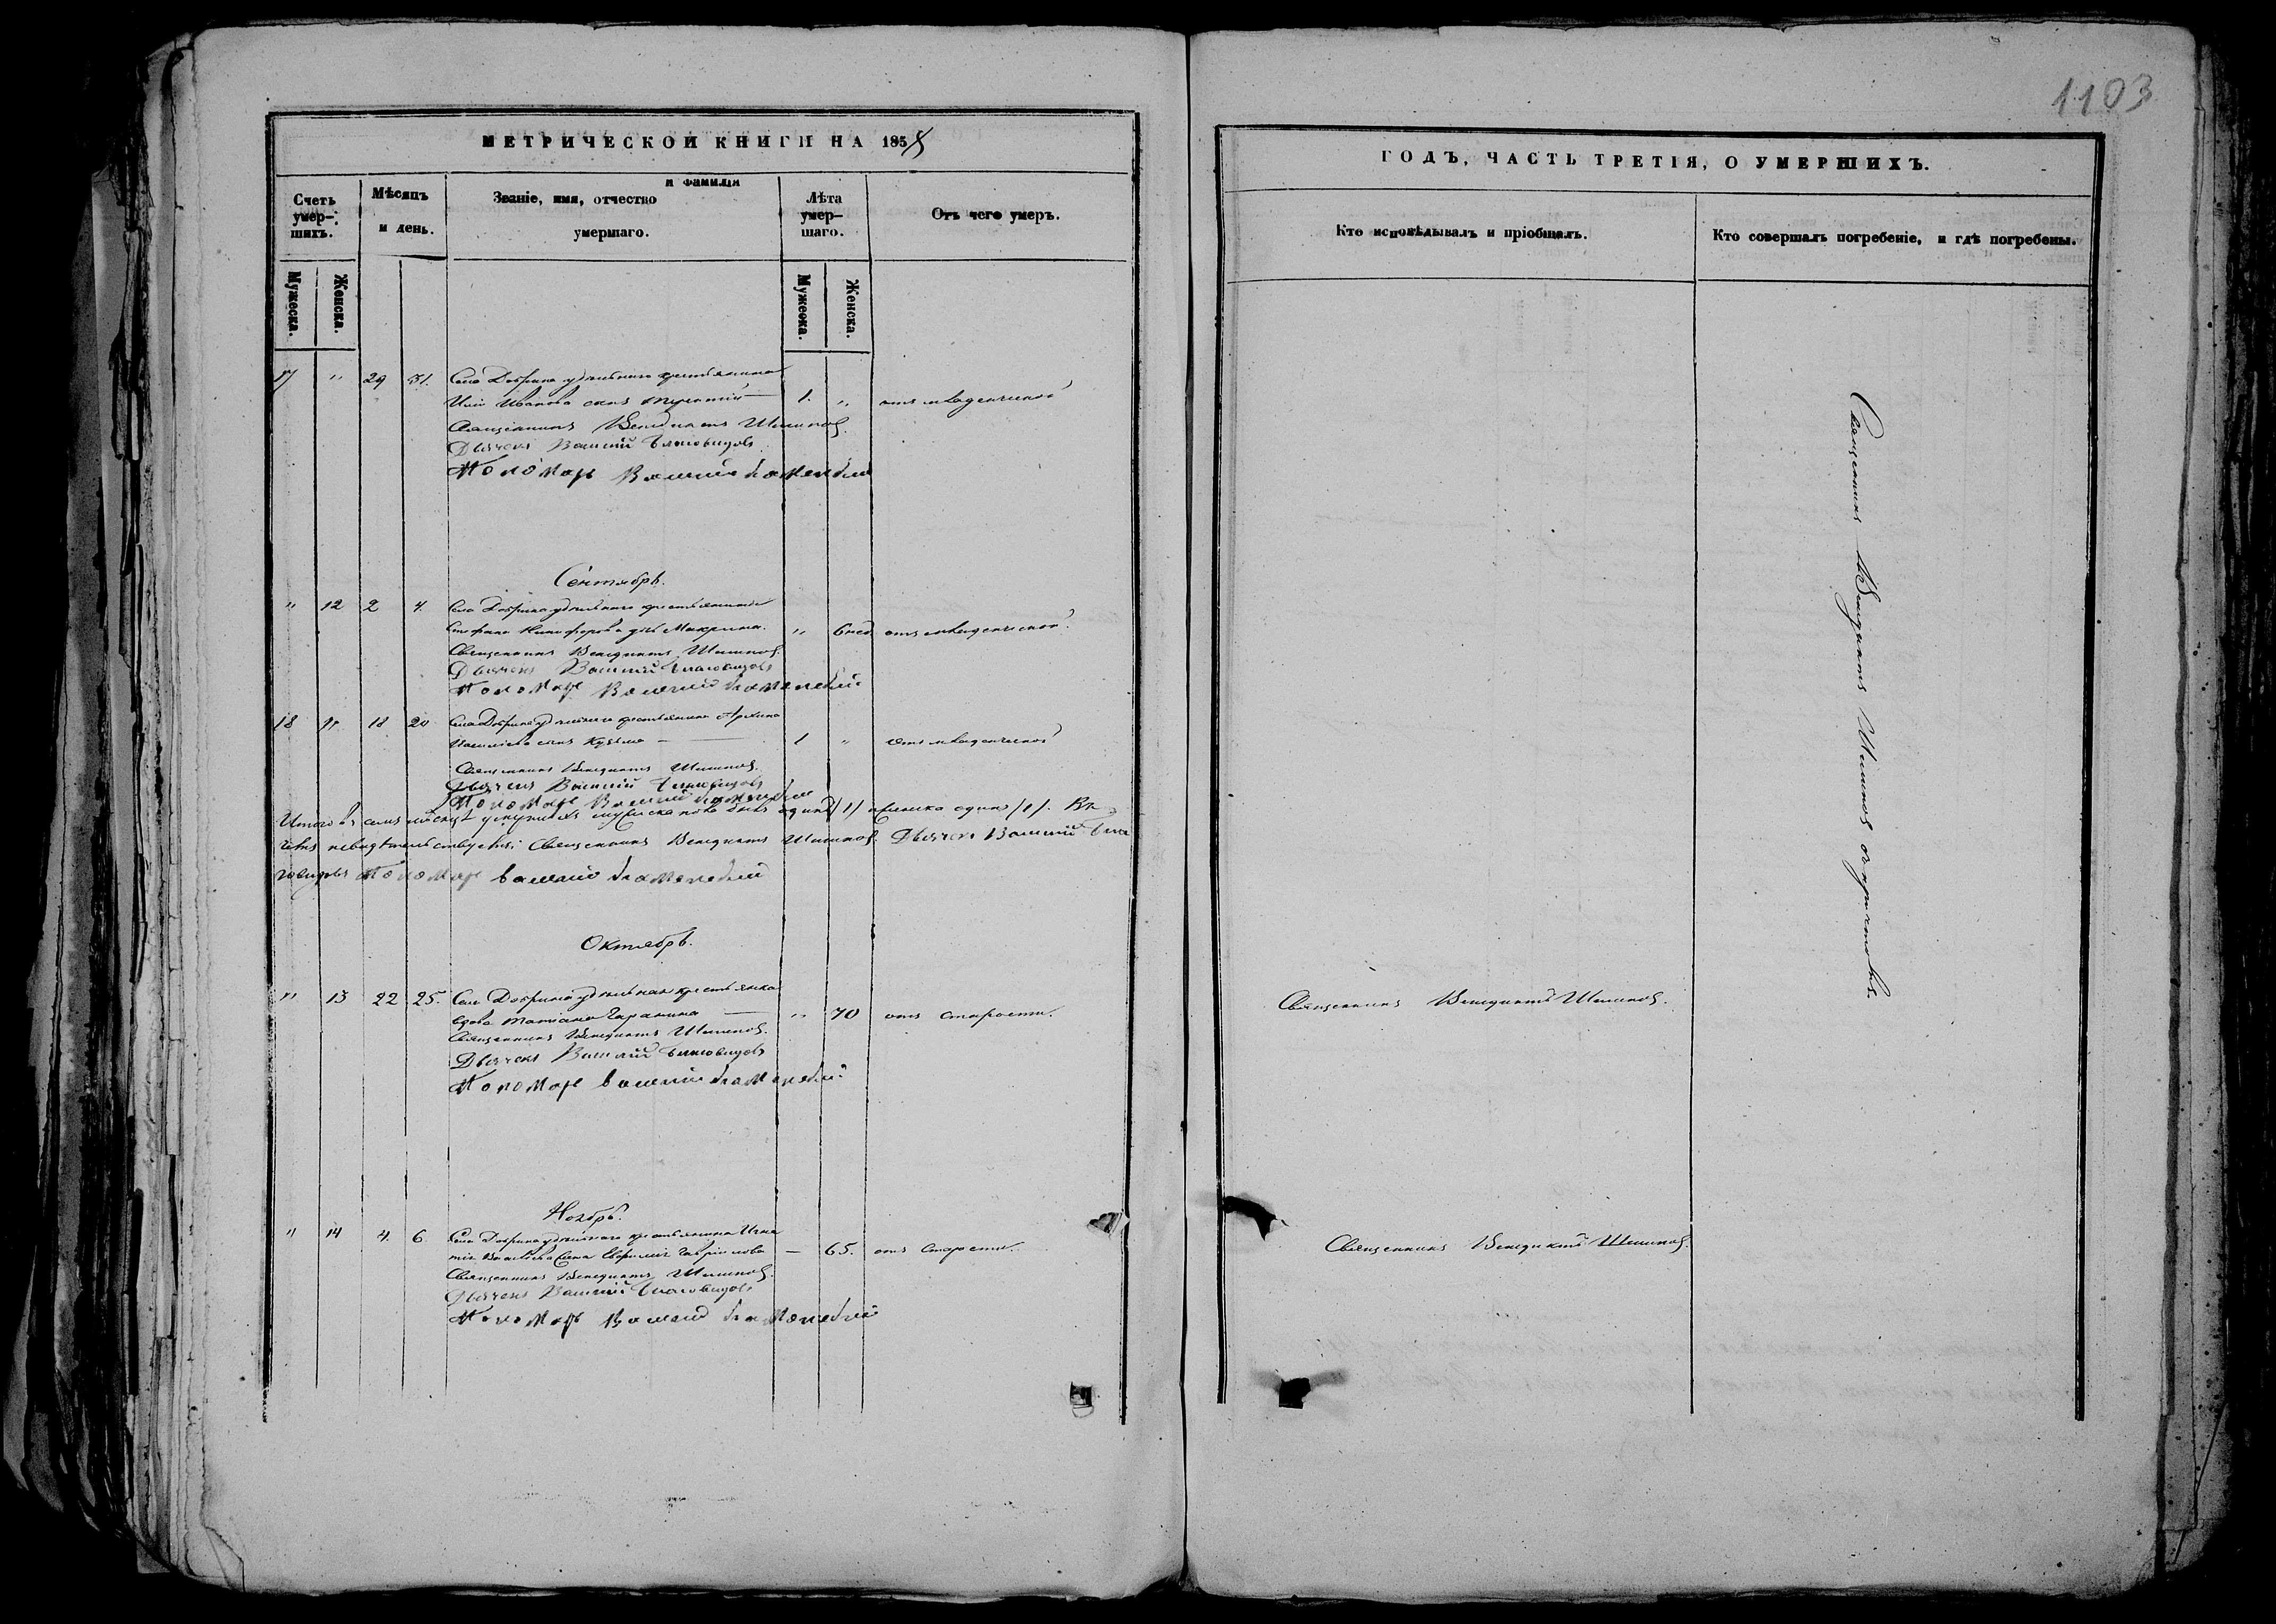 1103
МЕТРИЧЕСКОЙ КНИГИ НА 1858
Счетъ умер-шихъ.
Мѣсяцъ и день.
Званіе, имя, отчество и фамилія умершаго.
Лѣта умер-шаго.
Отъ чего умеръ.
Мужеска.
Женска.
Мужеска.
Женска.
17 " 29 31. Села Добрина удѣльнаго крестьянина
Иванова сынъ 1. " отъ младенческой
Священникъ Венедиктъ
Дьячекъ Василій Благовидовъ
Пономарь Василій
Сентябрь.
" 12 2 4. Села Добрина удѣльнаго крестьянина
Стефана Никифорова дчь Макрина. " 6 нед. отъ младенческой.
Священникъ Венедиктъ
Дьячекъ Василій Благовидовъ
Пономарь Василій
18 " 18 20 Села Добрина удѣльнаго крестьянина
сынъ Кузьма 1 " отъ младенческой
Священникъ Венедиктъ
Дьячекъ Василій Благовидовъ
Пономарь Василій
Итого въ семъ мѣсяцѣ умершихъ мужеска пола былъ одинъ /1/ женска одна /1/. Въ
чемъ и свидѣтельствуемъ: Священникъ Венедиктъ Дьячекъ Василій Бла
говидовъ Пономарь Василій
Октябрь.
" 13 22 25. Села Добрина удѣльная крестьянка
вдова Татіана " 70 отъ старости.
Священникъ Венедиктъ
Дьячекъ Василій Благовидовъ
Пономарь Василій
Ноябрь.
" 14 4. 6. Села Добрина удѣльнаго крестьянина Игна
тія Васильева жена Гаврилова — 65. отъ старости.
Священникъ Венедиктъ
Дьячекъ Василій Благовидовъ
Пономарь Василій
ГОДЪ, ЧАСТЬ ТРЕТІЯ, О УМЕРШИХЪ.
Кто исповѣдывалъ и пріобщалъ.
Кто совершалъ погребеніе, и гдѣ погребены.
Священникъ Венедиктъ съ причтомъ.
Священникъ Венедиктъ
Священникъ Венедиктъ